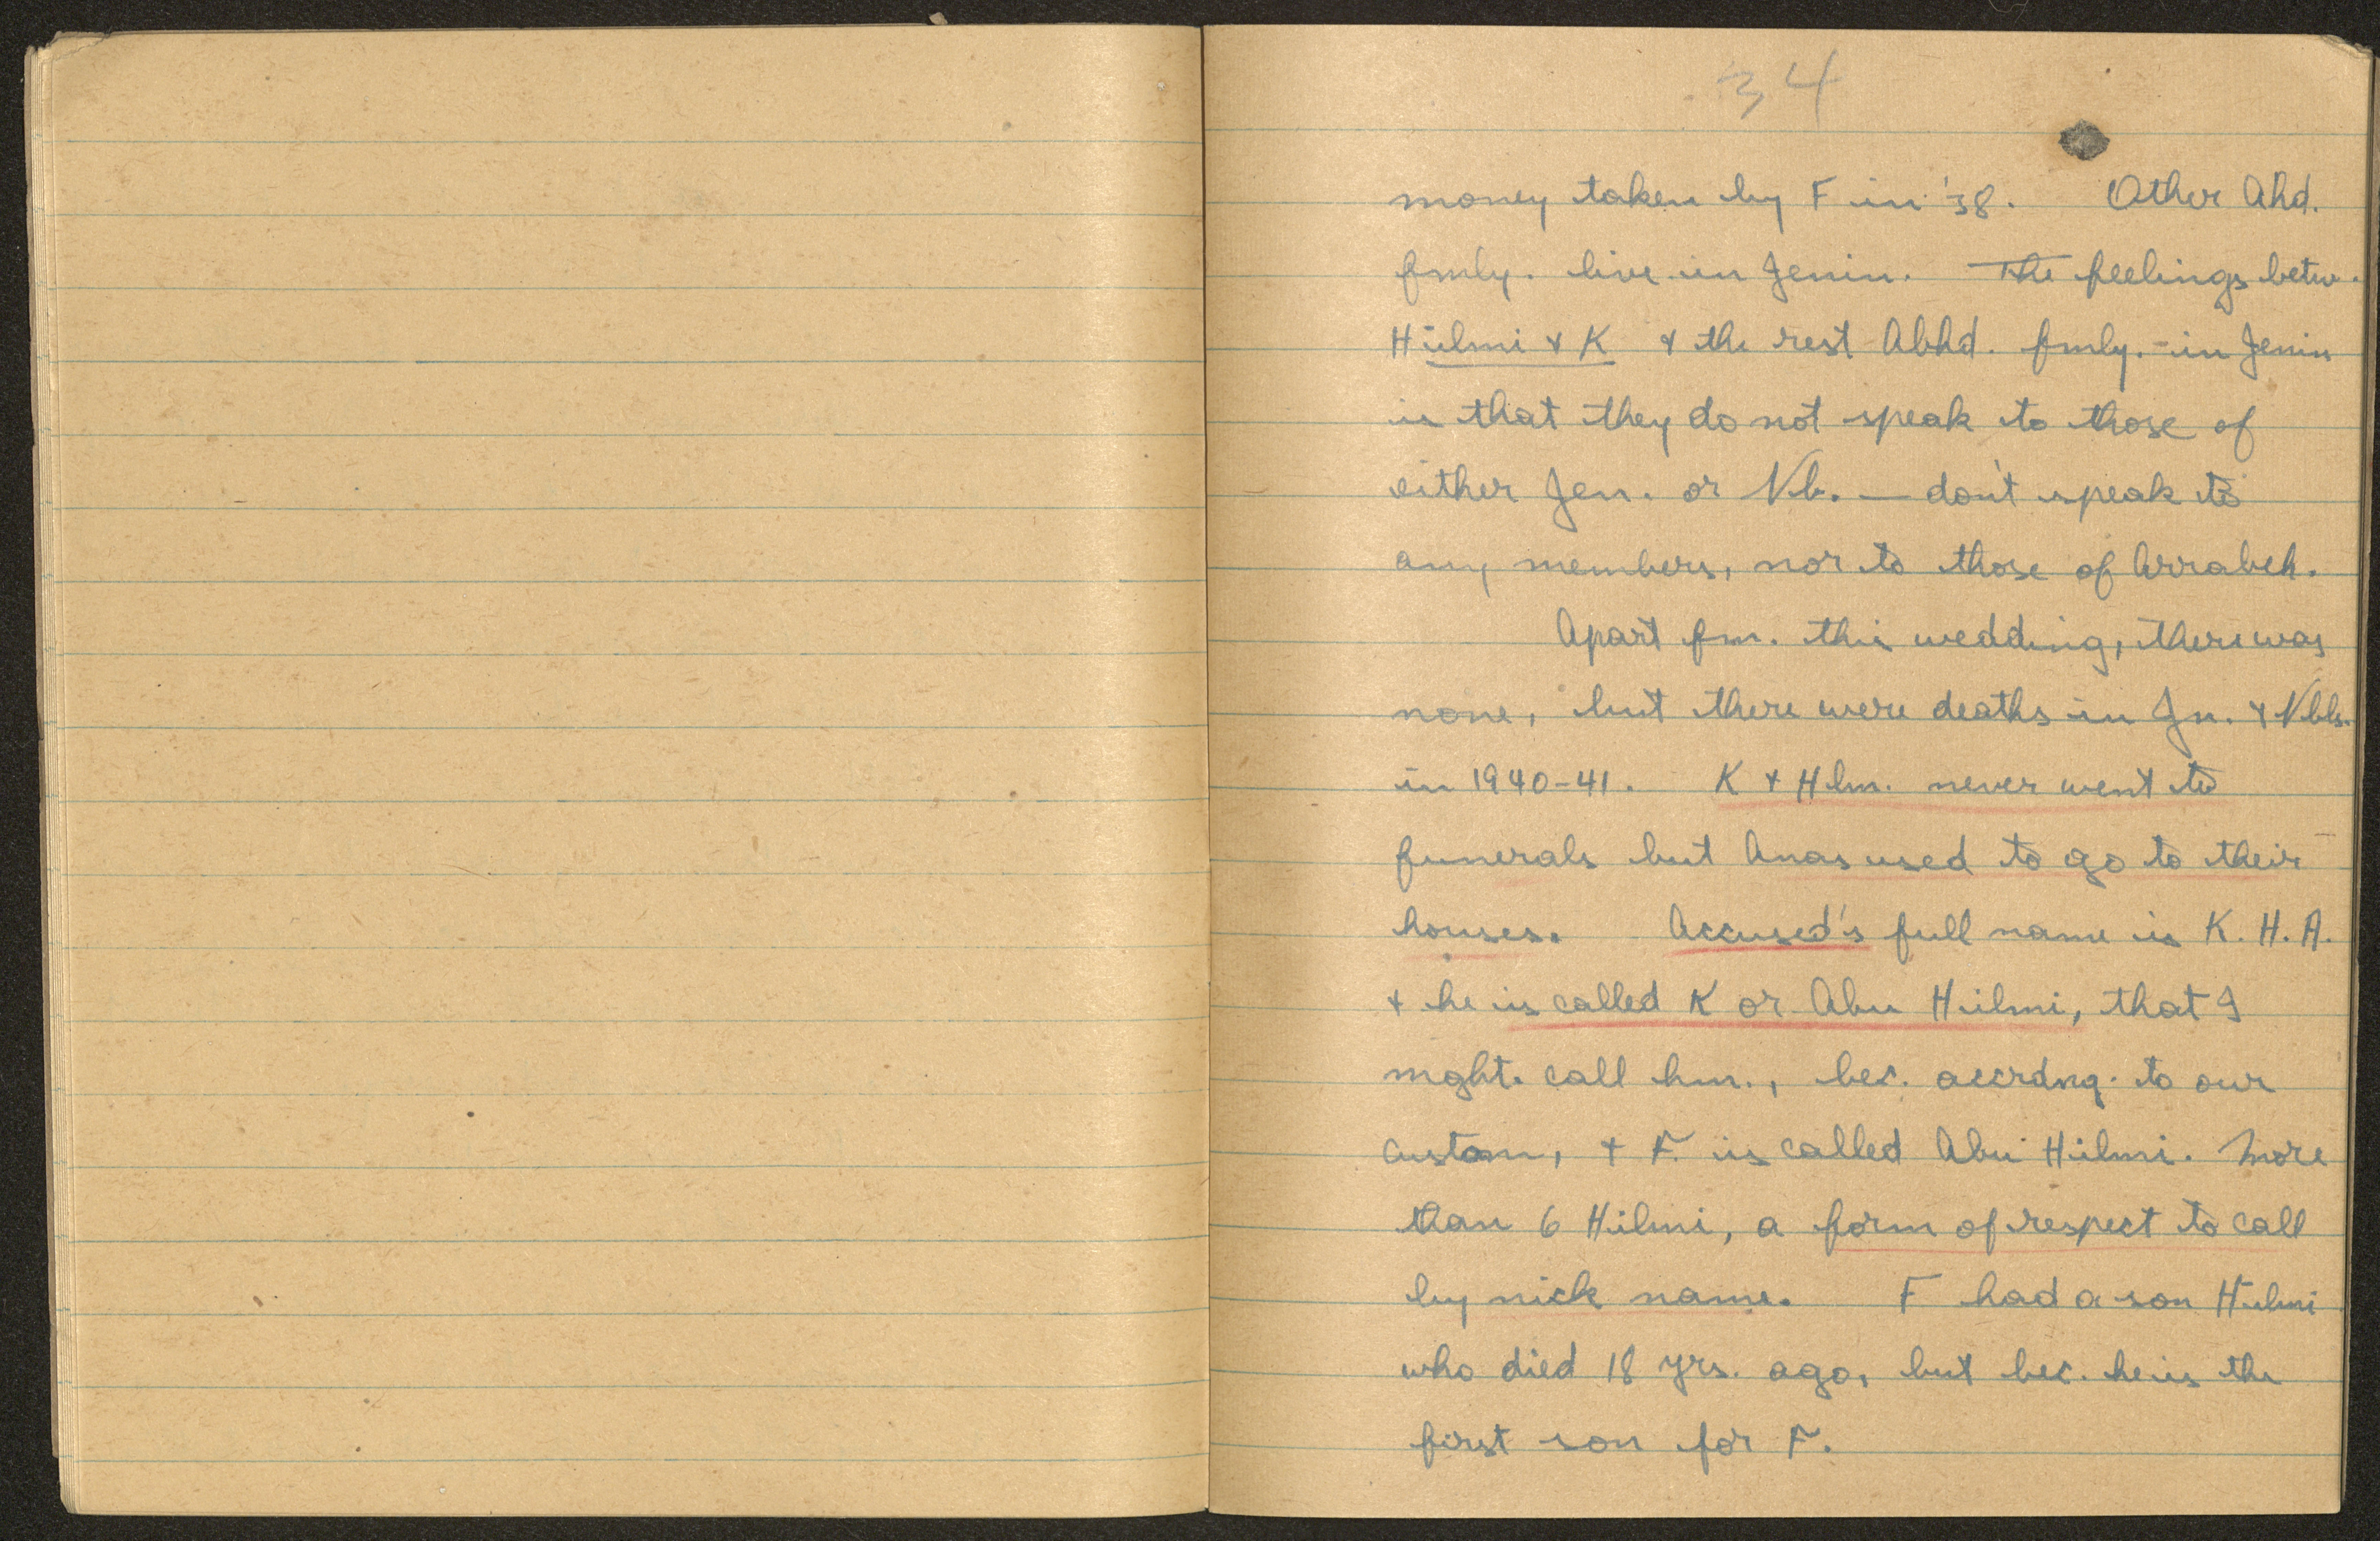 34
money taken by F in '38. Other Ahd.
fmly. live in Jenin. The feelings betw.
Hilmi + K + the rest Abhd. fmly. in Jenin
is that they do not speak to those of
either Jen. or Nb. — don't speak to
any members, nor to those of Arrabeh.
Apart fm. this wedding, there was
none, but there were deaths in Jn. + Nbls.
in 1940-41. K + Hlm. never went to
funerals but Anas used to go to their
houses. Accused's full name is K. H. A.
+ he is called K or Abu Hilmi, that I
mght. call hm., bec. accrdng. to our
custom, + F. is called Abu Hilmi. More
than 6 Hilmi, a form of respect to call
by nick name. F had a son Hilmi
who died 18 yrs. ago, but bec. he is the
first son for F.